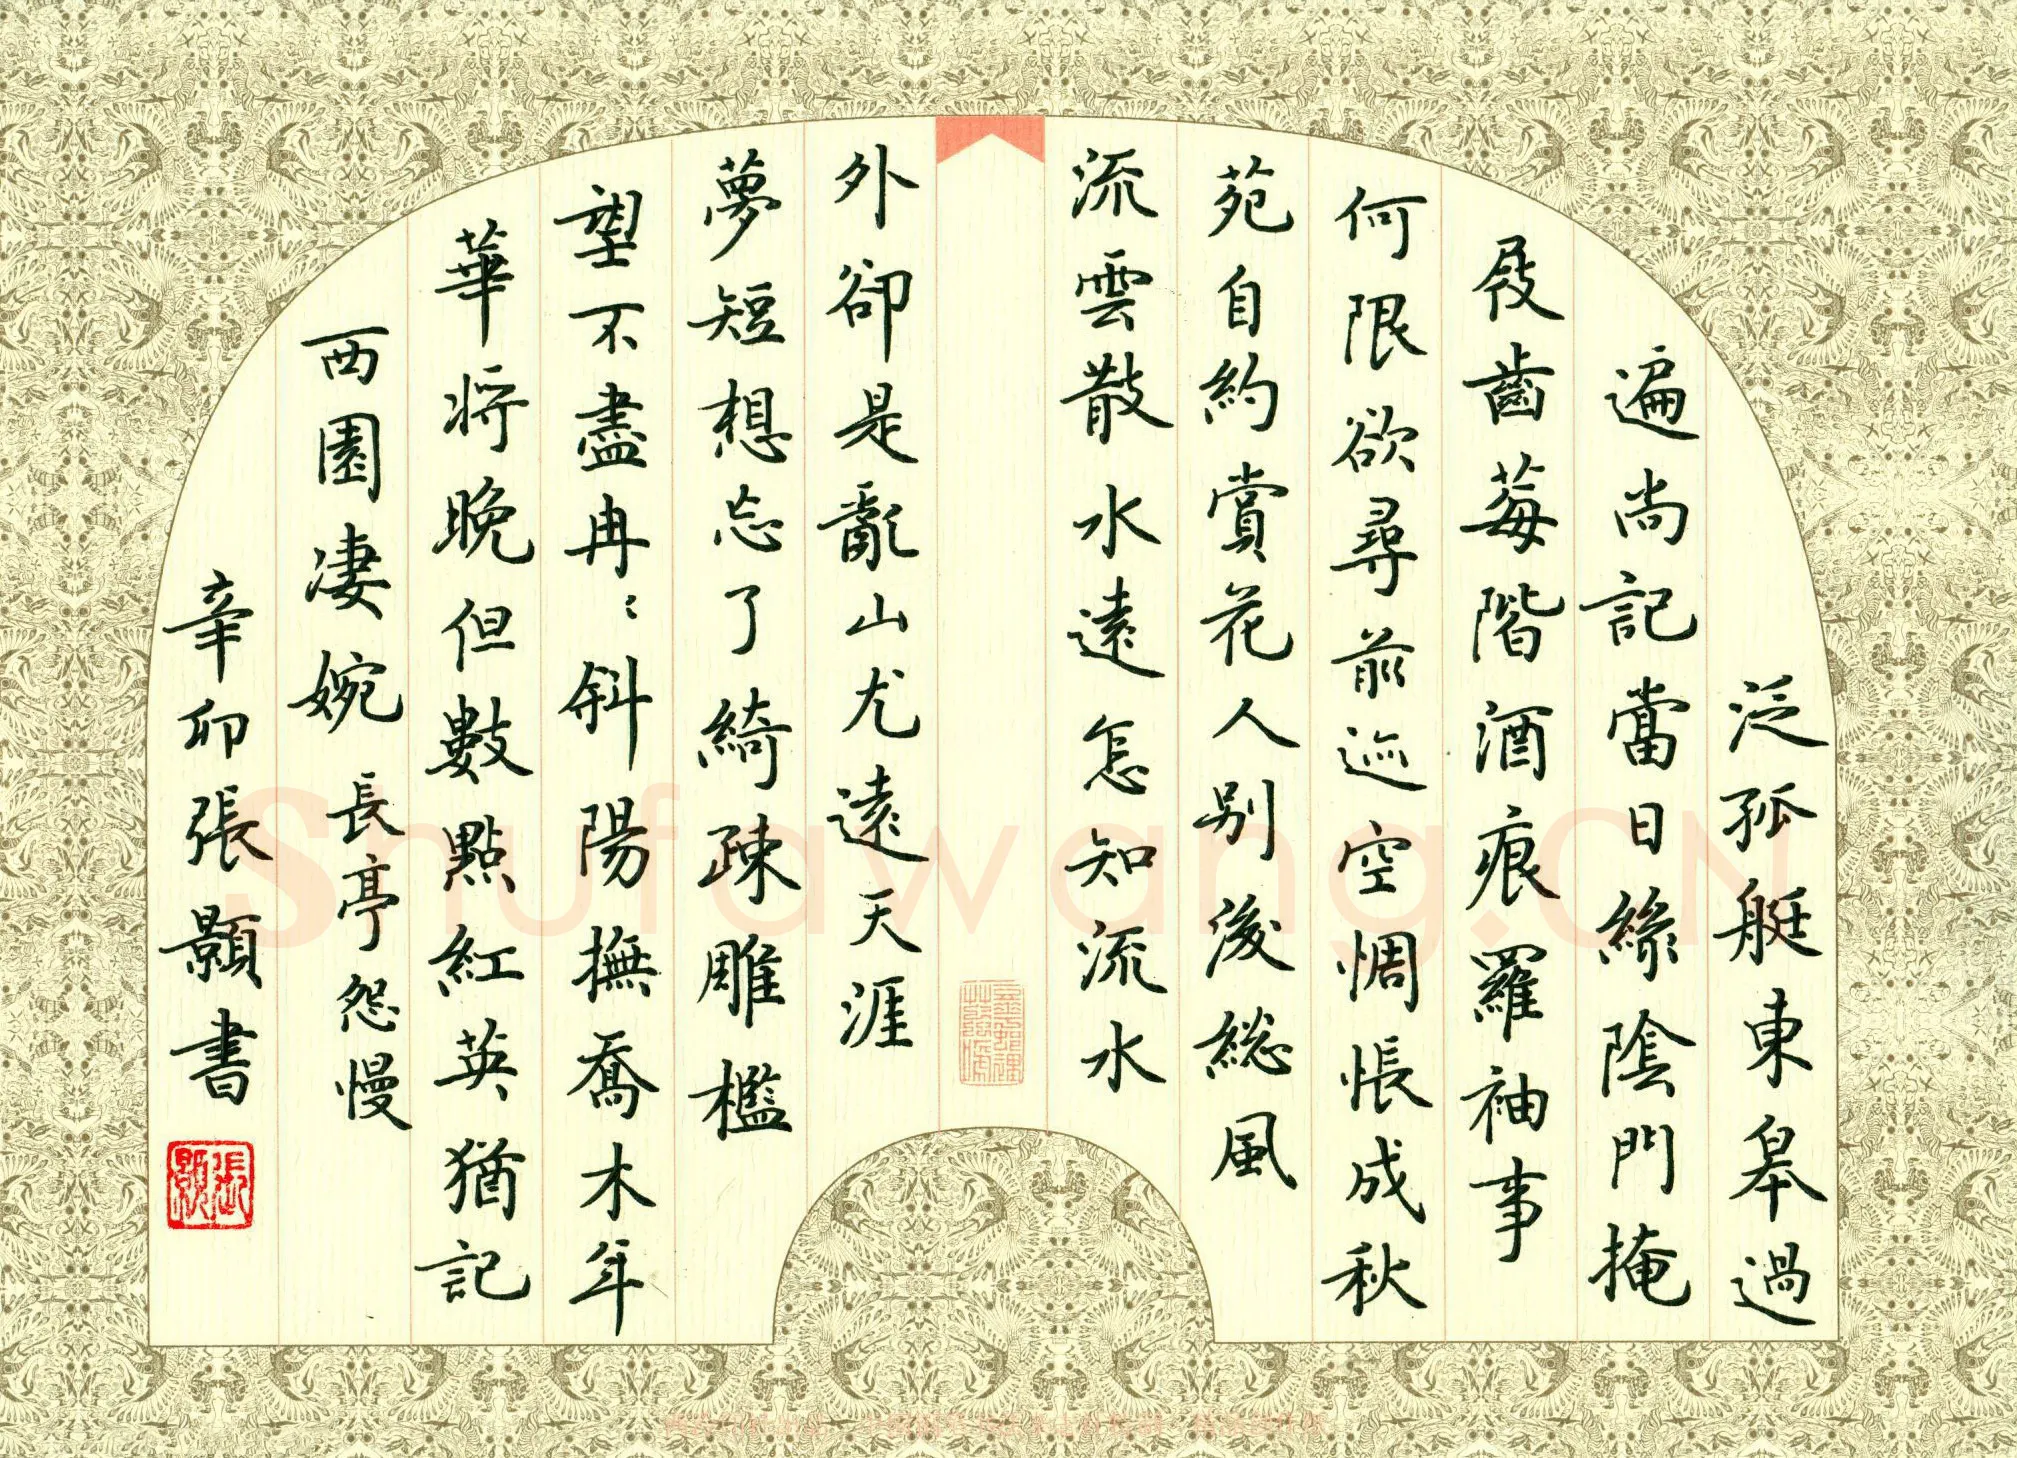 泛孤艇東皋過
遍尚記當日綠陰門掩
屐齒莓階酒痕羅袖事
何限欲尋前迹空惆悵成秋
苑自約賞花人別後總風
流雲散水遠怎知流水
外卻是亂山尤遠天涯
夢短想忘了綺疎雕檻
望不盡冉〻斜陽撫喬木年
華將晚但數點紅英猶記
西園凄婉 長亭怨慢
辛卯張顥書
張顥
Shufawang.CN